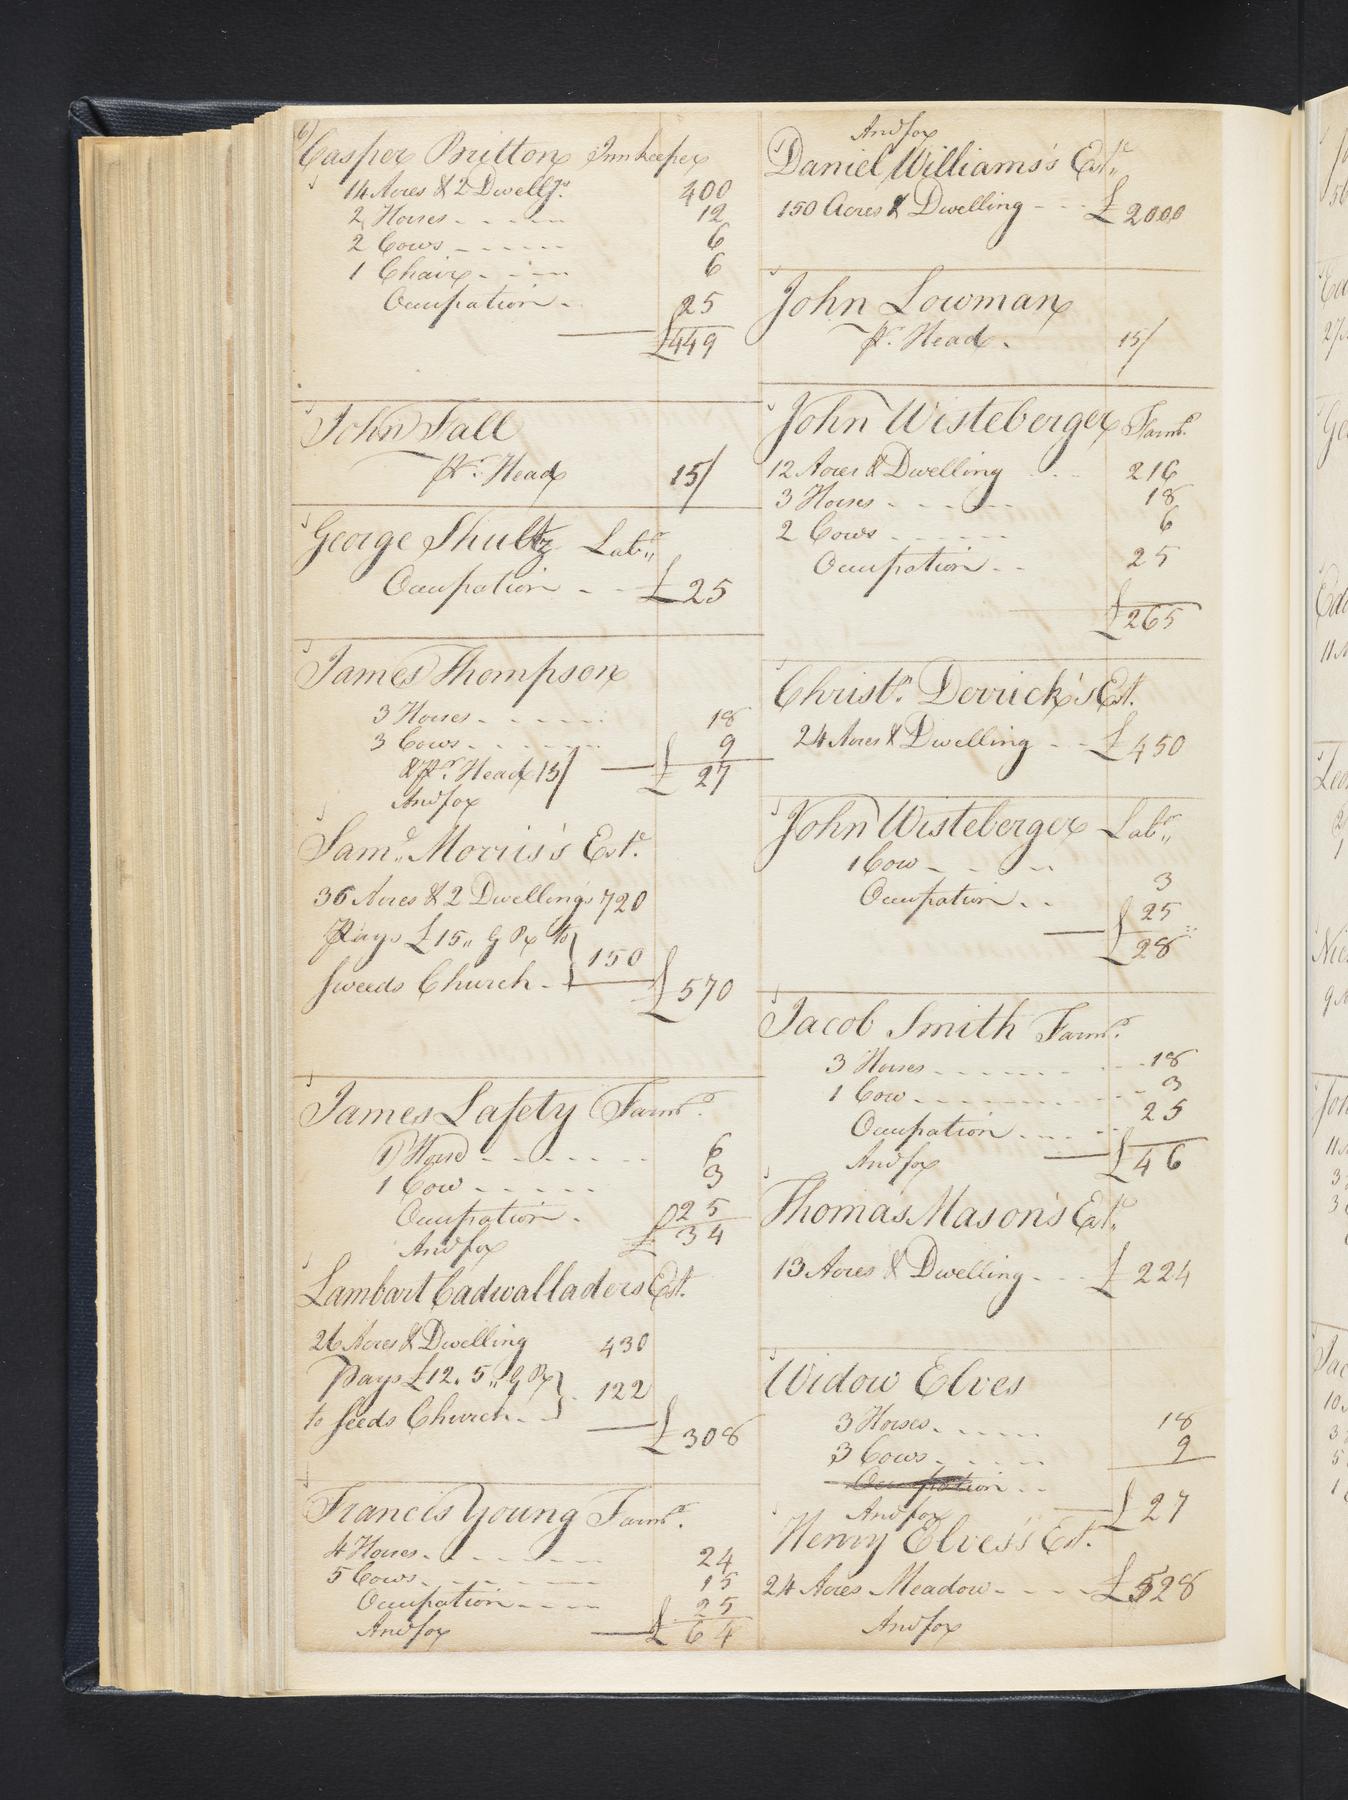 6)
Casper Britton Innkeeper
14 Acres & 2 Dwellgs. 400
2 Horses 12
2 Cows 6
1 Chair 6
Occupation 25
£449
John Fall
Pr. Head 15/
George Shultz Labr.
Occupation £25
James Thompson
3 Horses 18
3 Cows 9
& Pr. Head 15/ £27
And for
Saml. Morris's Este.
36 Acres & 2 Dwellings 720
Pays £15,, to
Sweeds Church 150
£570
James Lafety Farmr.
1 Horse 6
1 Cow 3
Occupation 25
£34
And for
Lambart Cadwalladers Est.
26 Acres & Dwelling 430
Pays £12.5,,
to Seeds Church 122
£308
Francis Young Farmr.
4 Horses 24
5 Cows 15
Occupation 25
And for £64
And for
Daniel Williams's Este.
150 Acres & Dwelling £2000
John Lowman
Pr. Head 15/
John Wisteberger Farmr.
12 Acres & Dwelling 216
3 Horses 18
2 Cows 6
Occupation 25
£265
Christn. Derrick's Est.
24 Acres & Dwelling £450
John Wisteberger Labr.
1 Cow 3
Occupation 25
£28
Jacob Smith Farmr.
3 Horses 18
1 Cow 3
Occupation 25
And for £46
Thomas Mason's Este.
13 Acres & Dwelling £224
Widow Elves
3 Horses 18
3 Cows 9
Occupation
And for £27
Henry Elves's Est.
24 Acres Meadow £528
And for